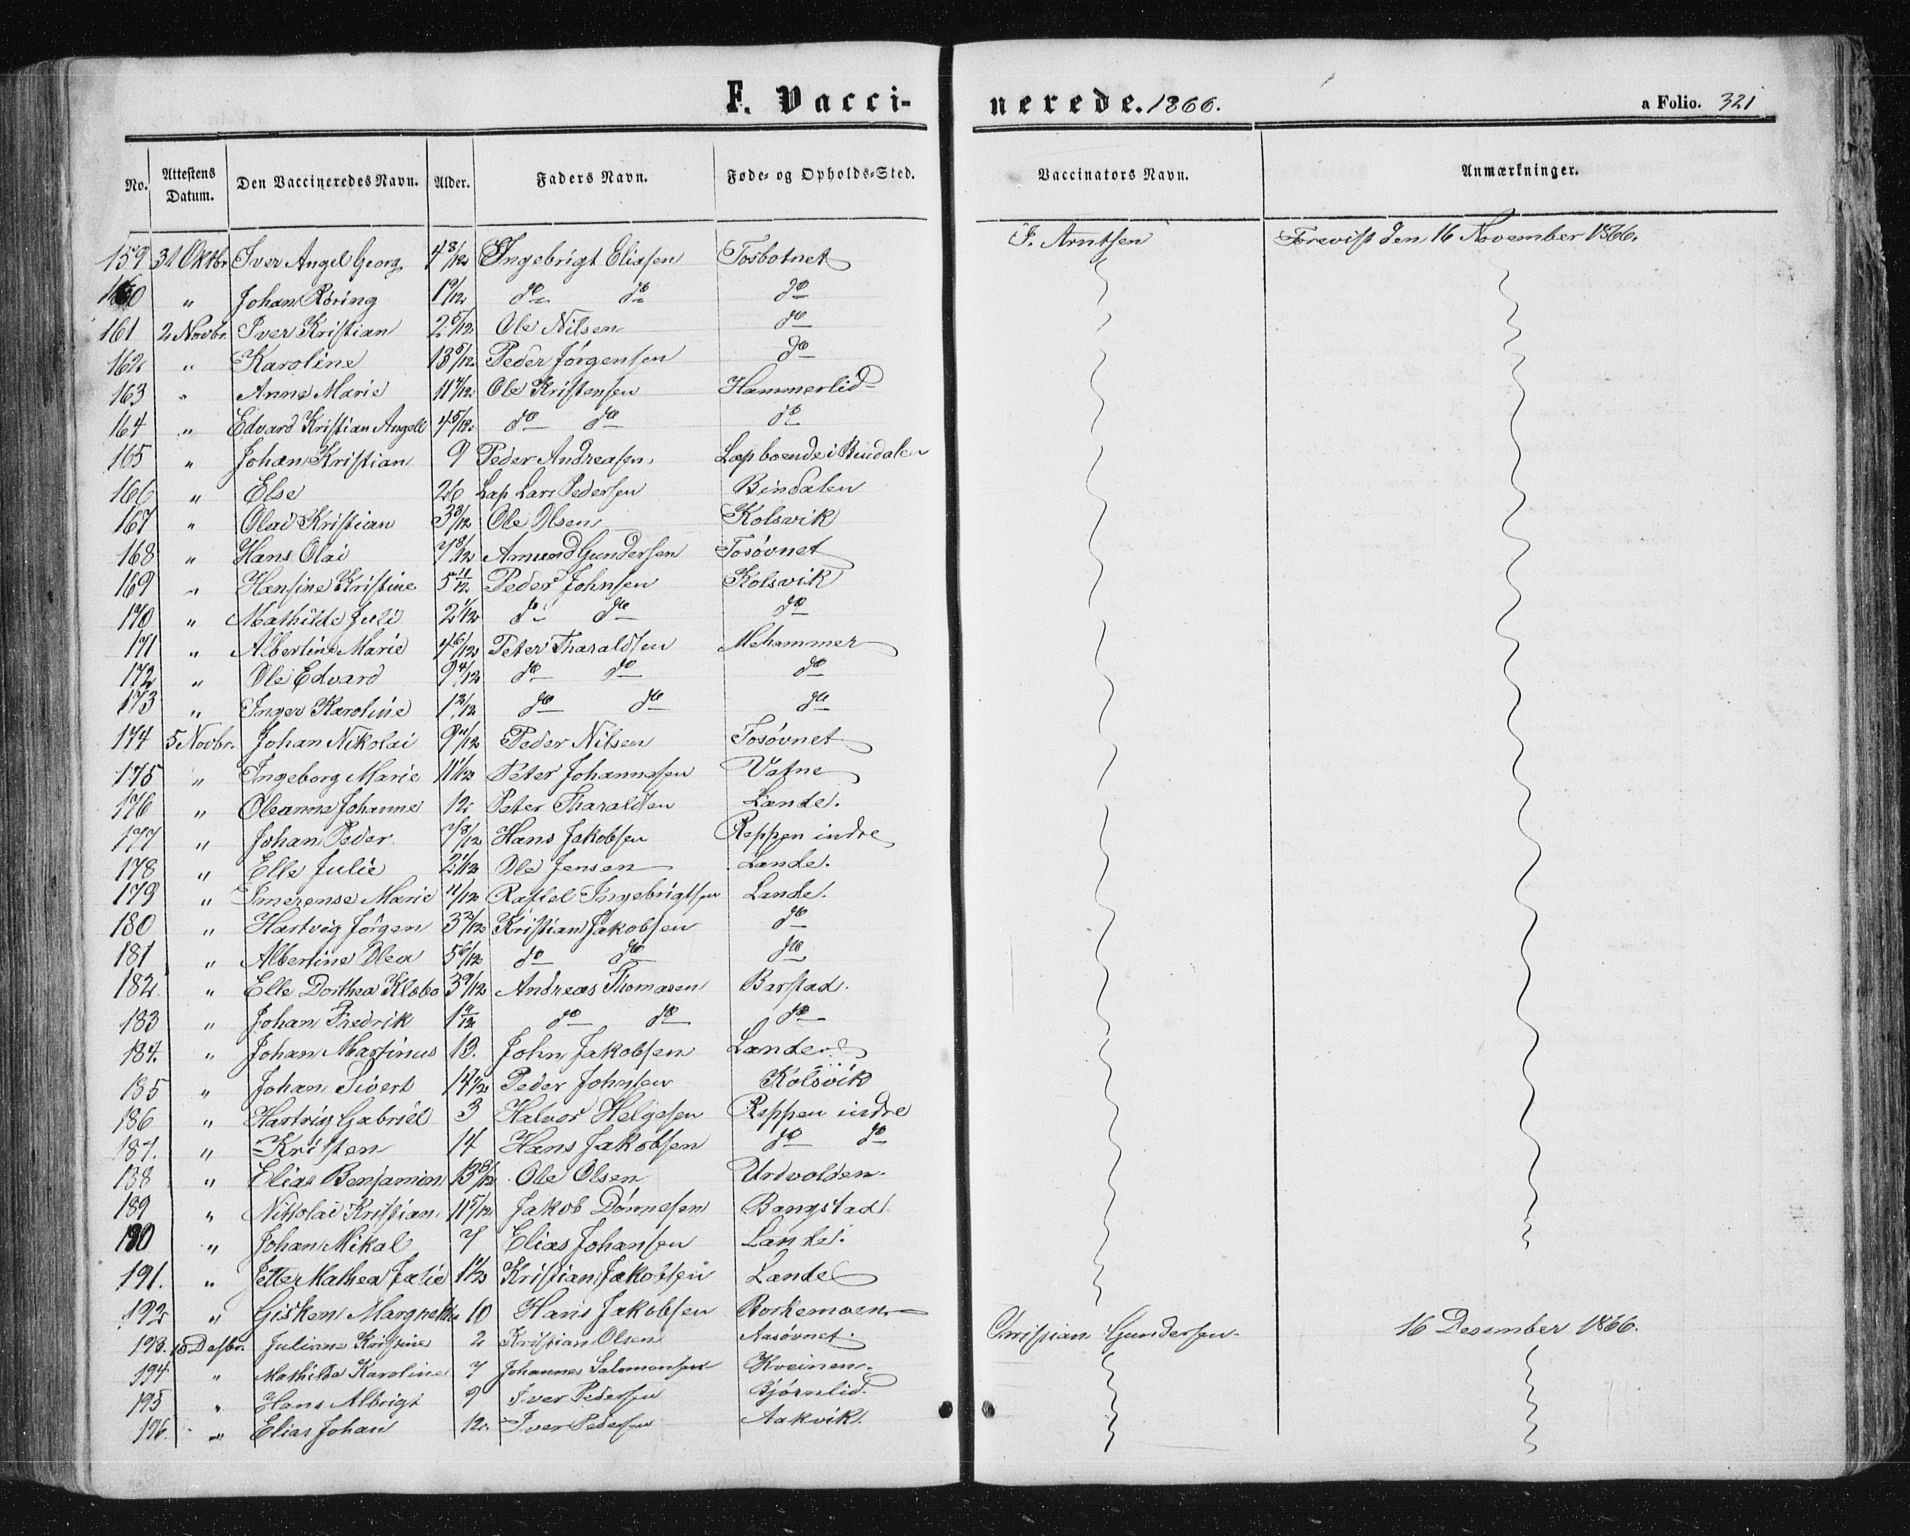 F. Vaccinerede. 1866. a Folio. 321
No. Attestens Datum. Den Vaccineredes Navn. Alder. Faders Navn. Føde- og Opholds-Sted. Vaccinators Navn. Anmærkninger.
159 31 Oktbr Iver Angel Georg 4 8/12 Ingebrigt Eliasen Tosbotnet J. Arntsen Forevist den 16 November 1866.
160 " Johan Røring 1 9/12 do do do
161 2 Novbr. Iver Kristian 2 5/12 Ole Nilsen do
162 " Karoline 13 5/12 Peder Jørgensen do
163 " Anne Marie 11 7/12 Ole Kristensen Hammerlid
164 " Edvard Kristian Angell 4 5/12 do do do
165 " Johan Kristian 9 Peder Andreasen Lap boende i Bindalen
166 " Else 26 Lap Lars Pedersen Bindalen
167 " Olai Kristian 3 8/12 Ole Olsen Kolsvik
168 " Hans Olai 7 8/12 Amund Gundersen Tosøvnet
169 " Hansine Kristine 5 11/12 Peder Johnsen Kolsvik
170 " Mathilde Juli 2 1/12 do do do
171 " Albertine Marie 4 6/12 Peter Tharaldsen Mehammer
172 " Ole Edvard 9 4/12 do do do
173 " Inger Karoline 1 2/12 do do do
174 5 Novbr. Johan Nikolai 9 2/12 Peder Nilsen Tosøvnet
175 " Ingeborg Marie 11 1/12 Peter Johannesen Vatne
176 " Oleanna Johanne 12 Peter Tharaldsen Lande.
177 " Johan Peder 7 8/12 Hans Jakobsen Reppen indre
178 " Elle Julie 2 1/12 Ole Jensen Lande.
179 " Imerense Marie 4/12 Rafiel Ingebrigtsen Lande.
180 " Hartvig Jørgen 3 2/12 Kristian Jakobsen do
181 " Albertine Olea 5 6/12 do do do
182. " Elle Dorthea Klæbo 3 9/12 Andreas Thomasen Barstad.
183 " Johan Fredrik 1 /12 do do do
184. " Johan Martinus 13. John Jakobsen Lande
185 " Johan Sivert 14 1/2 Peder Johnsen Kolsvik
186 " Hartvig Gabriel 3 Halvor Helgesen Reppen indre
187. " Kristen 14 Hans Jakobsen do do
188 " Elias Benjamin 13 8/12 Ole Olsen Urdvolden.
189 " Nikolai Kristian 11 5/12 Jakob Dønnesen Bangstad
190 " Johan Mikal 7 Elias Johansen Lande.
191. " Jette Mathea Julie 1 1/2 Kristian Jakobsen Lande
192 " Gisken Margrethe 10 Hans Jakobsen Borkemoen.
193. 15 Desbr. Juliane Kristine 2 Kristian Olsen Aasøvnet. Christian Gundersen. 16 Desember 1866.
194. " Mathilde Karoline 7 Johannes Salomonsen Kveinen.
195 " Hans Albrigt 9 Iver Pedersen Bjørnlid.
196. " Elias Johan 12. Iver Pedersen Aakvik.